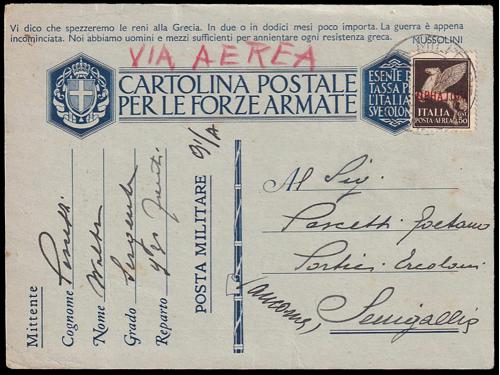 Vi dico che spezzeremo le reni alla Grecia. In due o in dodici mesi poco importa. La guerra è appena
incominciata. Noi abbiamo uomini e mezzi sufficienti per annientare ogni resistenza greca. MUSSOLINI
VIA AEREA
CARTOLINA POSTALE
PER LE FORZE ARMATE
ESENTE
TASSA P
L'ITALIA
SUE COLON
ITALIA
POSTA AEREA
50
Mittente
Cognome
Nome Walter
Grado Sergente
Reparto
POSTA MILITARE 91/A
Al Sig.
Pascetti Gaetano
Portici Ercolani
(Ancona) Senigallia